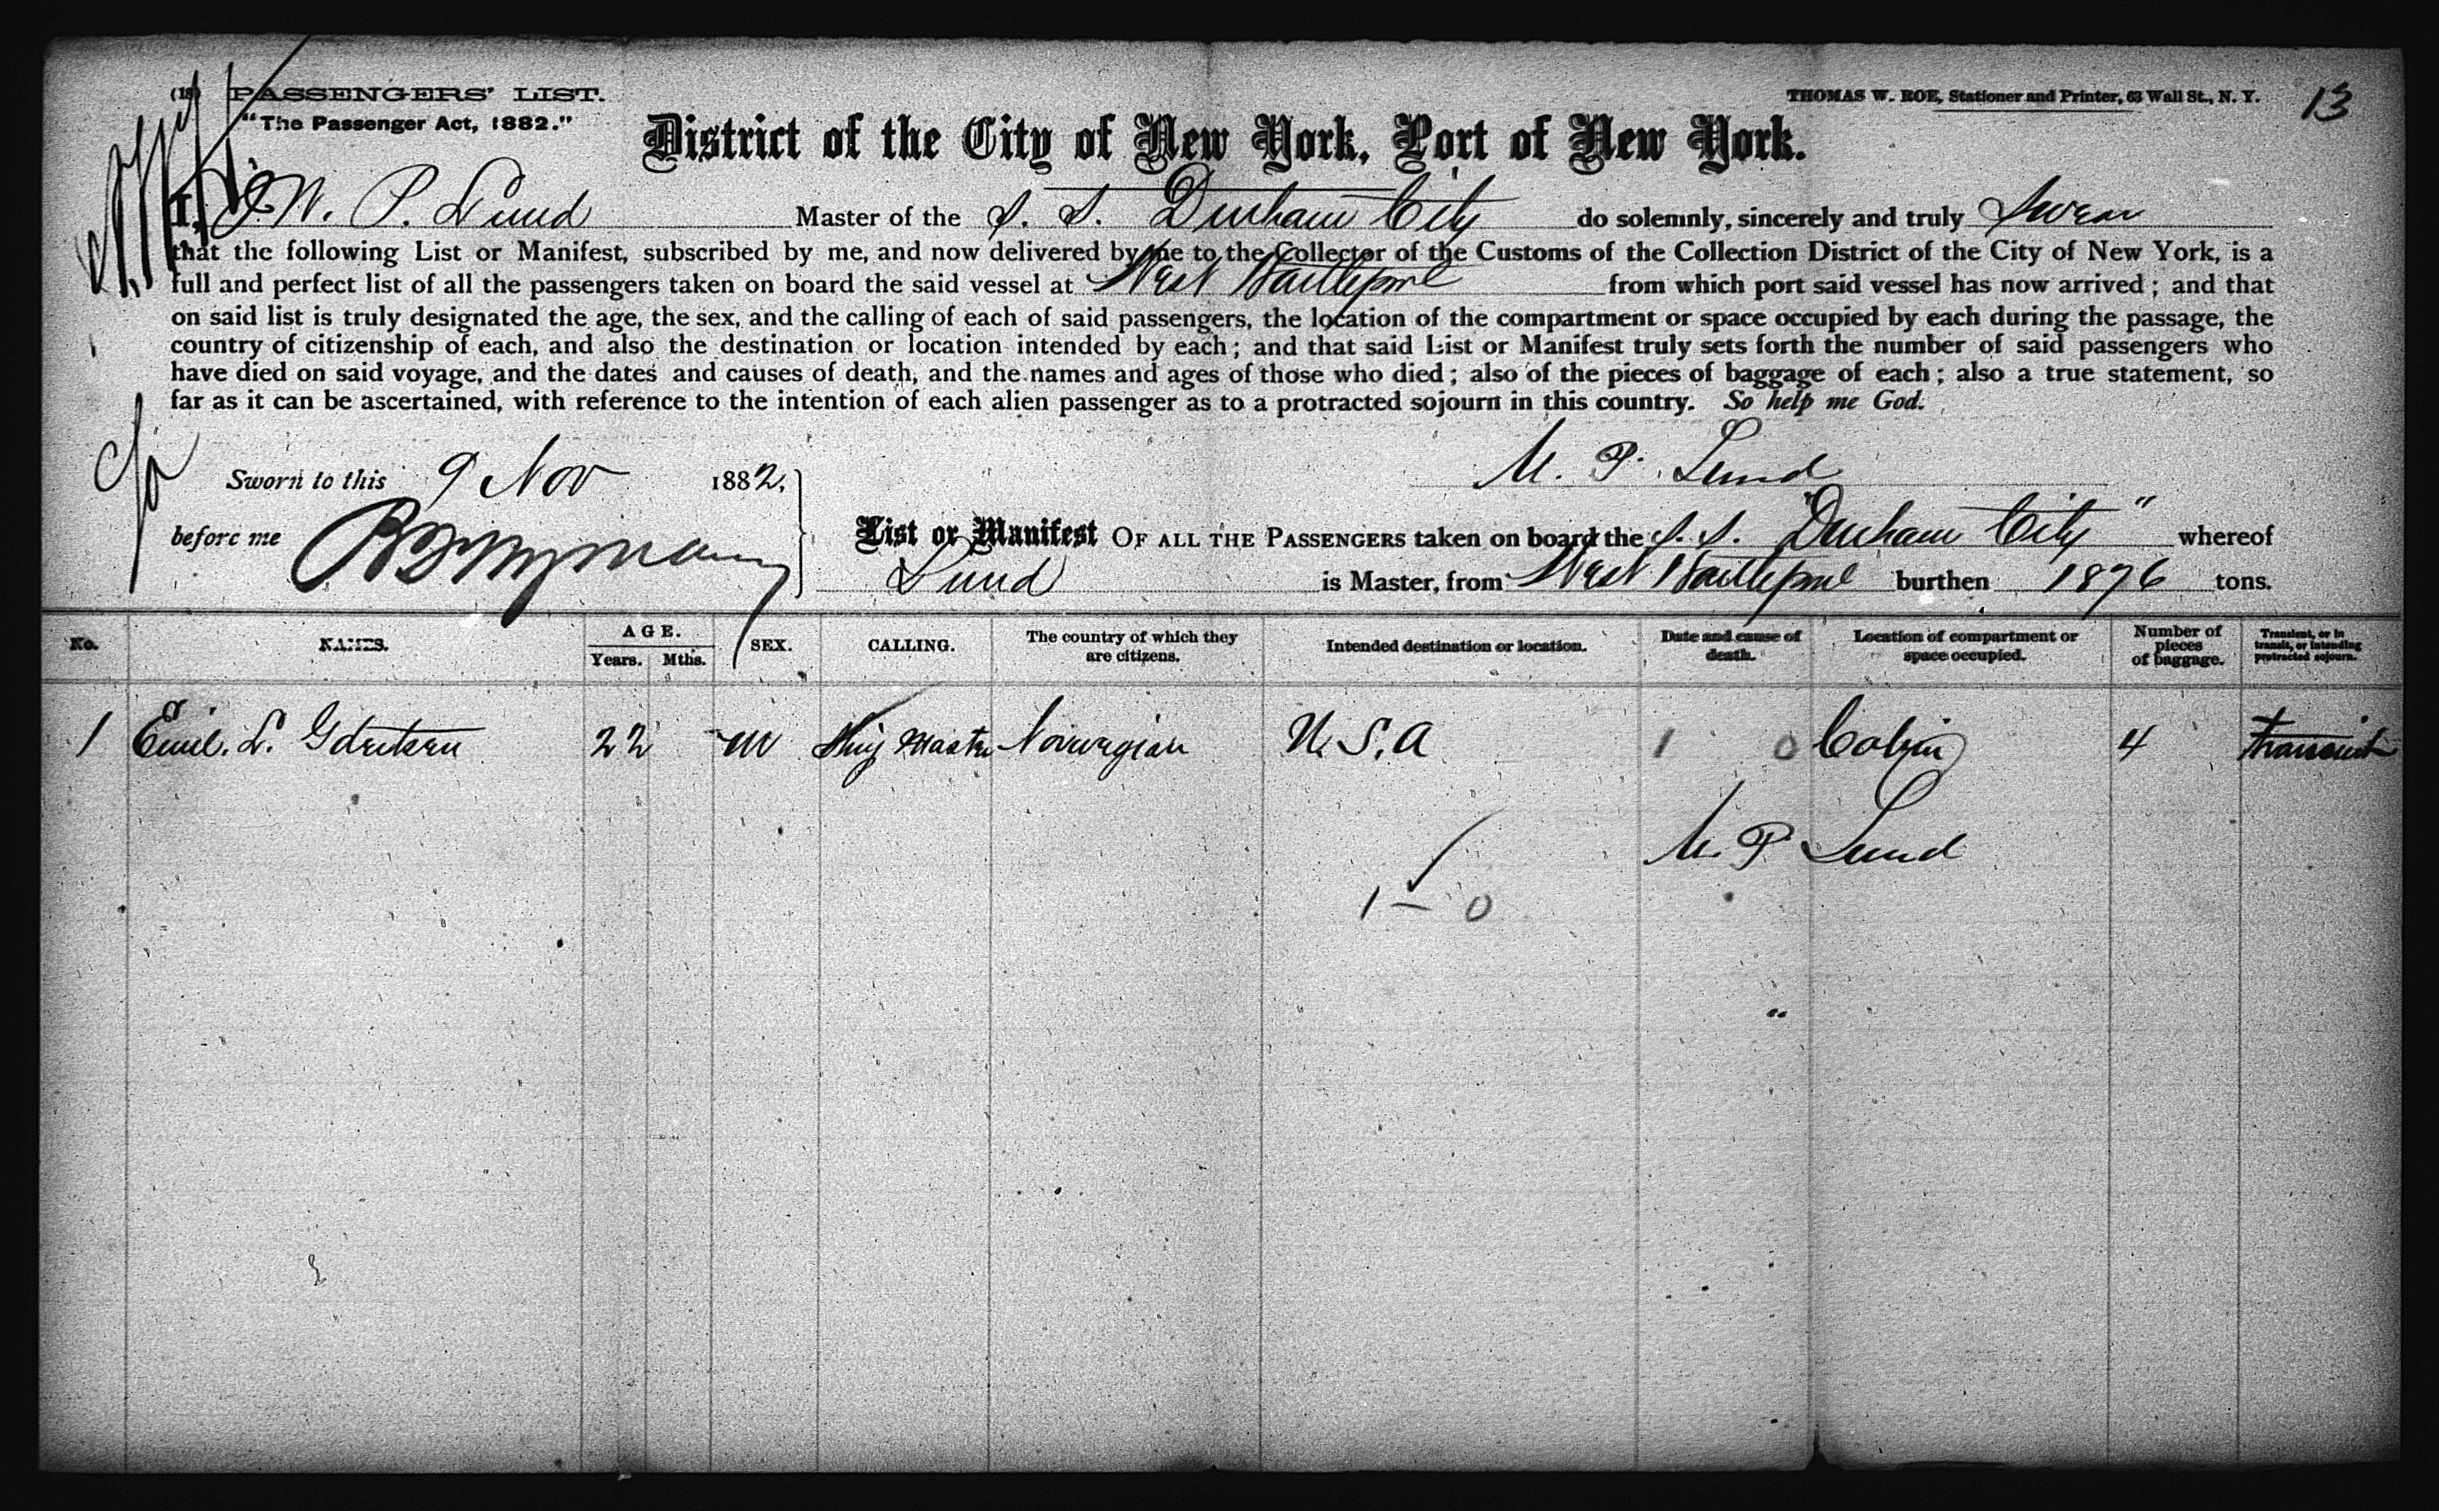 (18) PASSENGERS' LIST.
"The Passenger Act, 1882."
THOMAS W. ROE, Stationer and Printer, 63 Wall St., N. Y.
13
District of the City of New York, Port of New York.
I, P. Lund Master of the S. S. Durham City do solemnly, sincerely and truly Swear
that the following List or Manifest, subscribed by me, and now delivered by me to the Collector of the Customs of the Collection District of the City of New York, is a
full and perfect list of all the passengers taken on board the said vessel at West Hartlepool from which port said vessel has now arrived; and that
on said list is truly designated the age, the sex, and the calling of each of said passengers, the location of the compartment or space occupied by each during the passage, the
country of citizenship of each, and also the destination or location intended by each; and that said List or Manifest truly sets forth the number of said passengers who
have died on said voyage, and the dates and causes of death, and the names and ages of those who died; also of the pieces of baggage of each; also a true statement, so
far as it can be ascertained, with reference to the intention of each alien passenger as to a protracted sojourn in this country. So help me God.
M. P. Lund
Sworn to this 9 Nov 1882,
before me
List or Manifest OF ALL THE PASSENGERS taken on board the S. S. "Durham City" whereof
Lund is Master, from West Hartlepool burthen 1876 tons.
No. NAMES. AGE. Years. Mths. SEX. CALLING. The country of which they are citizens. Intended destination or location. Date and cause of death. Location of compartment or space occupied. Number of pieces of baggage. Transient, or in transit, or intending protracted sojourn.
1 Emil. L. 22 m Ship Master Norwegian U. S. A 1 0 Cabin 4 transient
M. P. Lund
1 — 0